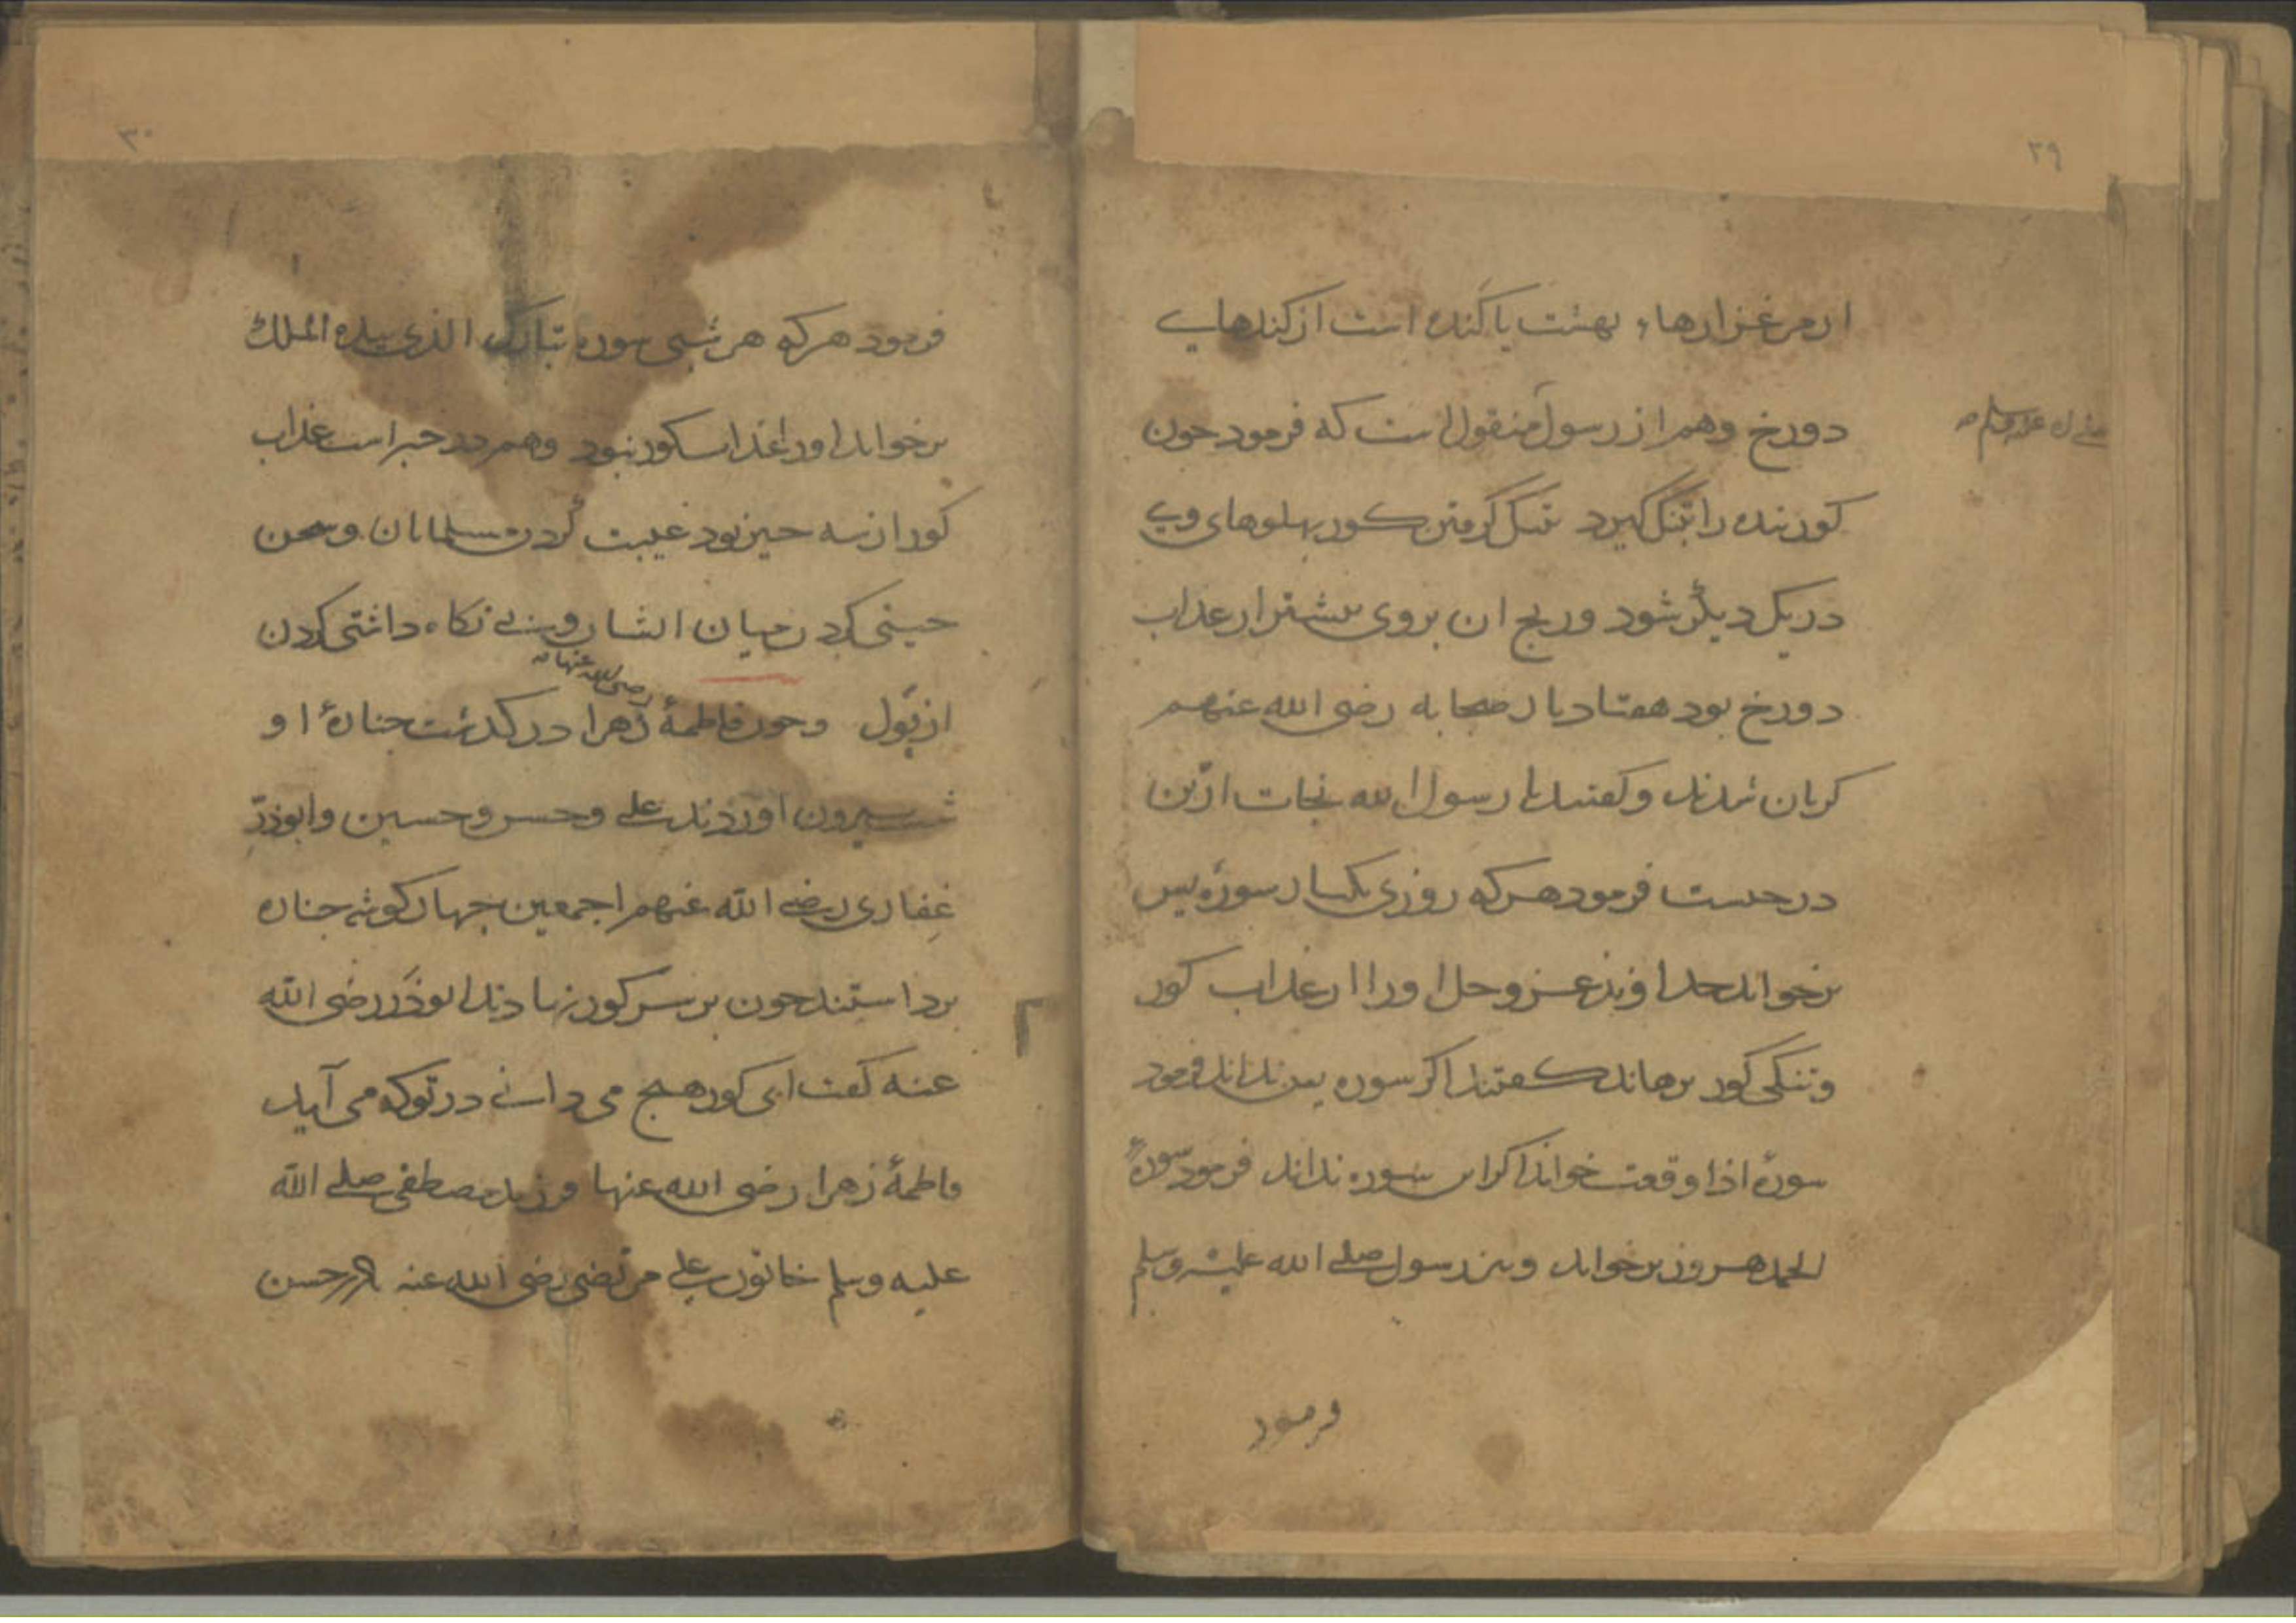 ۲۹
از مرغزارهاء بهشت یا کنده است از کندهایے
دوزخ وهم از رسول منقول است که فرمود چون
صلی الله علیه وسلم
کور بنده را بتنک کیرد تنک کرفتن کور پهلوهای وی
در یک دیکر شود ورنج ان بروی بیشتر از عذاب
دوزخ بود هفتاد بار صحابه رضی الله عنهم
کریان شدند وکفتند یا رسول الله نجات ازین
در چیست فرمود هر که روزی یکبار سورۀ یس
برخواند خداوند عز وجل او را از عذاب کور
وتنکی کور برهاند کفتند اکر سوره یس نداند فرمود
سورۀ اذا وقعت خواند اکر این سوره نداند فرمود سورۀ
الحمد هر روز برخواند ونیز رسول صلی الله علیه وسلم
فرمود
۳۰
فرمود هر که هر شبی سوره تبارک الذی بیده الملک
برخواند او را عذاب کور نبود وهم در خبر است عذاب
کور از سه چیز بود غیبت کردن مسلمانان وسخن
چینی کردن میان ایشان ونے نکاه داشتی کردن
از بول وچون فاطمۀ زهرا درکذشت جنازۀ او
رضی الله عنها
شب بیرون اوردند علی وحسن وحسین وابوذر
غفاری رضی الله عنهم اجمعین چهار کوشه جنازه
برداستند چون بر سر کور نهادند ابوذر رضی الله
عنه کفت ای کور هیچ می دانے در تو که می آید
فاطمۀ زهرا رضی الله عنها فرزند مصطفی صلی الله
علیه وسلم خاتون علی مرتضی رضی الله عنه مادر حسن